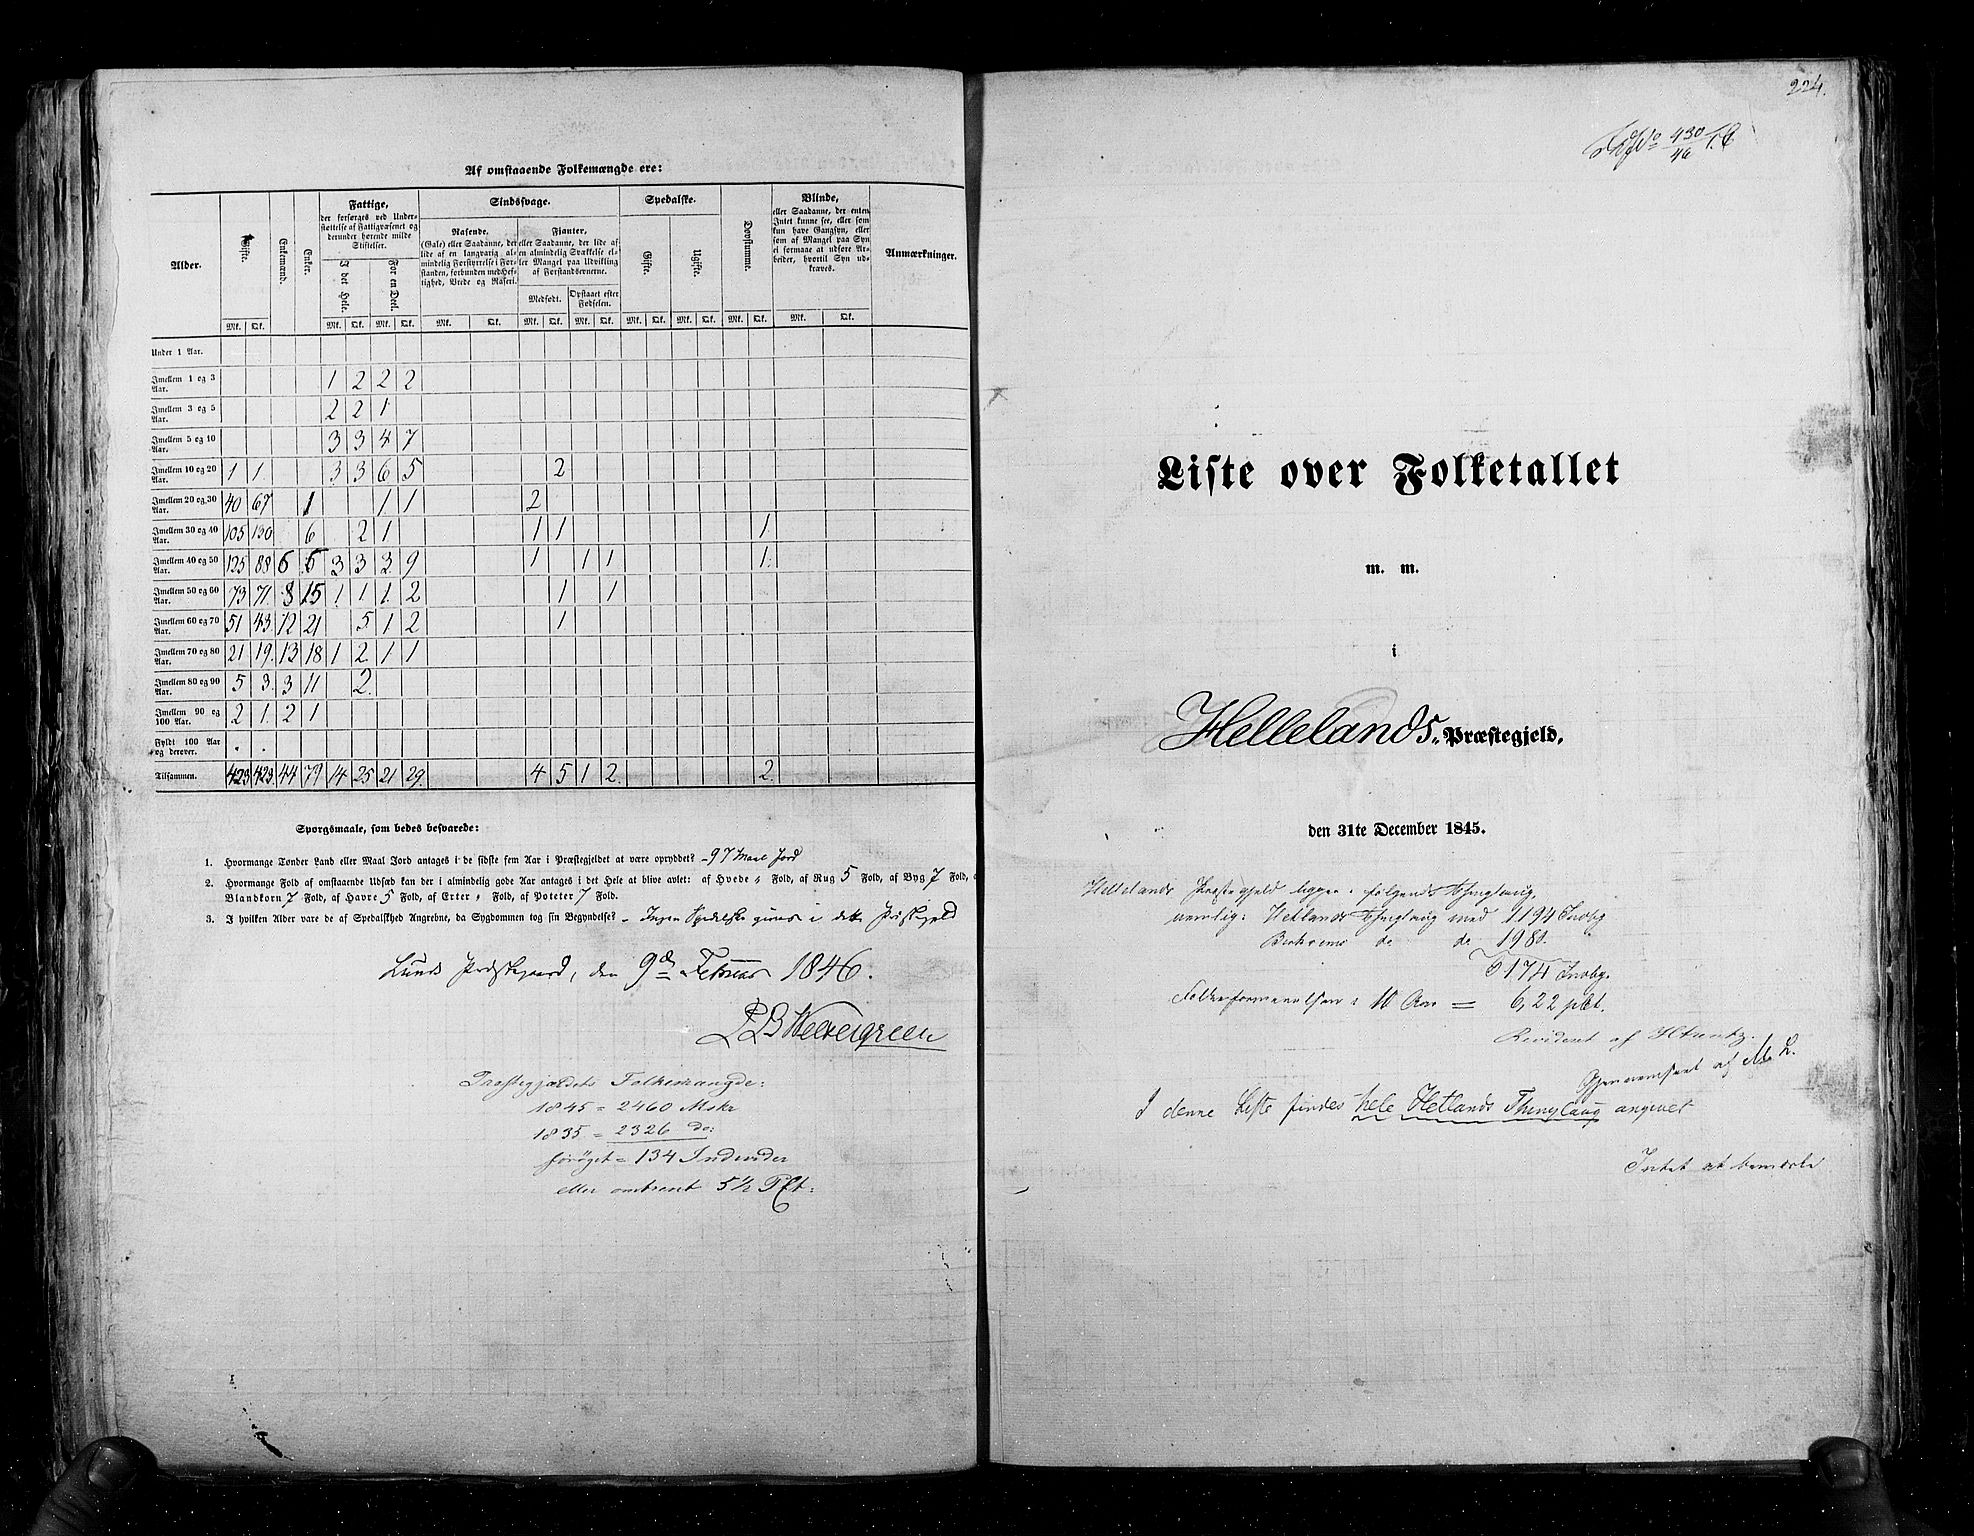 Af omstaaende Folkemængde ere:
Alder. Gifte. Enkemænd. Enker. Fattige, der forsørges ved Understøttelse af Fattigvæsenet og derunder hørende milde Stiftelser. Sindssvage. Spedalske. Døvstumme. Blinde, eller Saadanne, der enten Intet kunne see, eller som kun have Gangsyn, eller som af Mangel paa Syn ei formaae at udføre Arbeider, hvortil Syn udkræves. Anmærkninger.
I det Hele. For en Deel. Rasende. (Gale) eller Saadanne, der lide af en langvarig almindelig Forstyrrelse i Forstanden, forbunden med Heftighed, Vrede og Raseri. Fjanter, eller Saadanne, der lide af en almindelig Svækkelse eller Mangel paa Udvikling af Forstandsevnerne. Gifte. Ugifte.
Medfødt. Opstaaet efter Fødselen.
Mk. Qk. Mk. Qk. Mk. Qk. Mk. Qk. Mk. Qk. Mk. Qk. Mk. Qk. Mk. Qk. Mk. Qk. Mk. Qk.
Under 1 Aar.
Imellem 1 og 3 Aar. 1 2 2 2
Imellem 3 og 5 Aar. 2 2 1
Imellem 5 og 10 Aar. 3 3 4 7
Imellem 10 og 20 Aar. 1 1. 3 3 6 5 2
Imellem 20 og 30 Aar. 40 67 1 1 1 2
Imellem 30 og 40 Aar. 105 130 6 2 1 1 1 1.
Imellem 40 og 50 Aar. 125 88 6 6 3 3 3 9 1 1 1 1.
Imellem 50 og 60 Aar. 73 71. 8 15 1. 1 1. 2 1 1
Imellem 60 og 70 Aar. 51 43. 12 21 5. 1 2 1
Imellem 70 og 80 Aar. 21 19. 13 18 1 2. 1 1
Imellem 80 og 90 Aar. 5 3. 3 11 2.
Imellem 90 og 100 Aar. 2 1. 2 1
Fyldt 100 Aar og derover. . .
Tilsammen. 423 423. 44 79 14 25 21 29. 4 5 1 2. 2.
Spørgsmaale, som bedes besvarede:
1. Hvormange Tønder Land eller Maal Jord antages i de sidste fem Aar i Præstegjeldet at være opryddet? - 97 Maal Jord
2. Hvormange Fold af omstaaende Udsæd kan der i almindelig gode Aar antages i det Hele at blive avlet: af Hvede " Fold, af Rug 5 Fold, af Byg 7 Fold,
Blandkorn 7 Fold, af Havre 5 Fold, af Erter " Fold, af Poteter 7 Fold.
3. I hvilken Alder vare de af Spedalskhed Angrebne, da Sygdommen tog sin Begyndelse? - Ingen Spedalske gives i dette
Lunds Præstegaard, den 9de Februar 1846.
Præstegjældets Folkemængde:
1845 = 2460 Msk
1835 = 2326 do:
forøget = 134 Individer
eller omtrent 5½ Pct:
224.
430/46
Liste over Folketallet
m. m.
i
Hellelands Præstegjeld,
den 31te December 1845.
Hellelands Præstegjeld ligger i følgende Thinglaug,
nemlig: Hetlands Thinglaug med 1194 Indbg
do do 1980.
3174 Indbg.
Folkeformerelsen i 10 Aar = 6,22 pCt.
Revideret af
Gjennemseet af
I denne Liste findes hele Hetlands Thinglaug angivet
Intet at bemærke